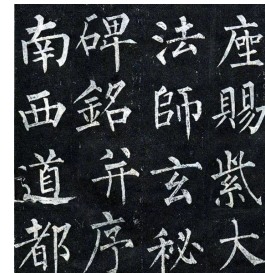 座賜紫大
法師玄秘
碑銘并序
南西道都